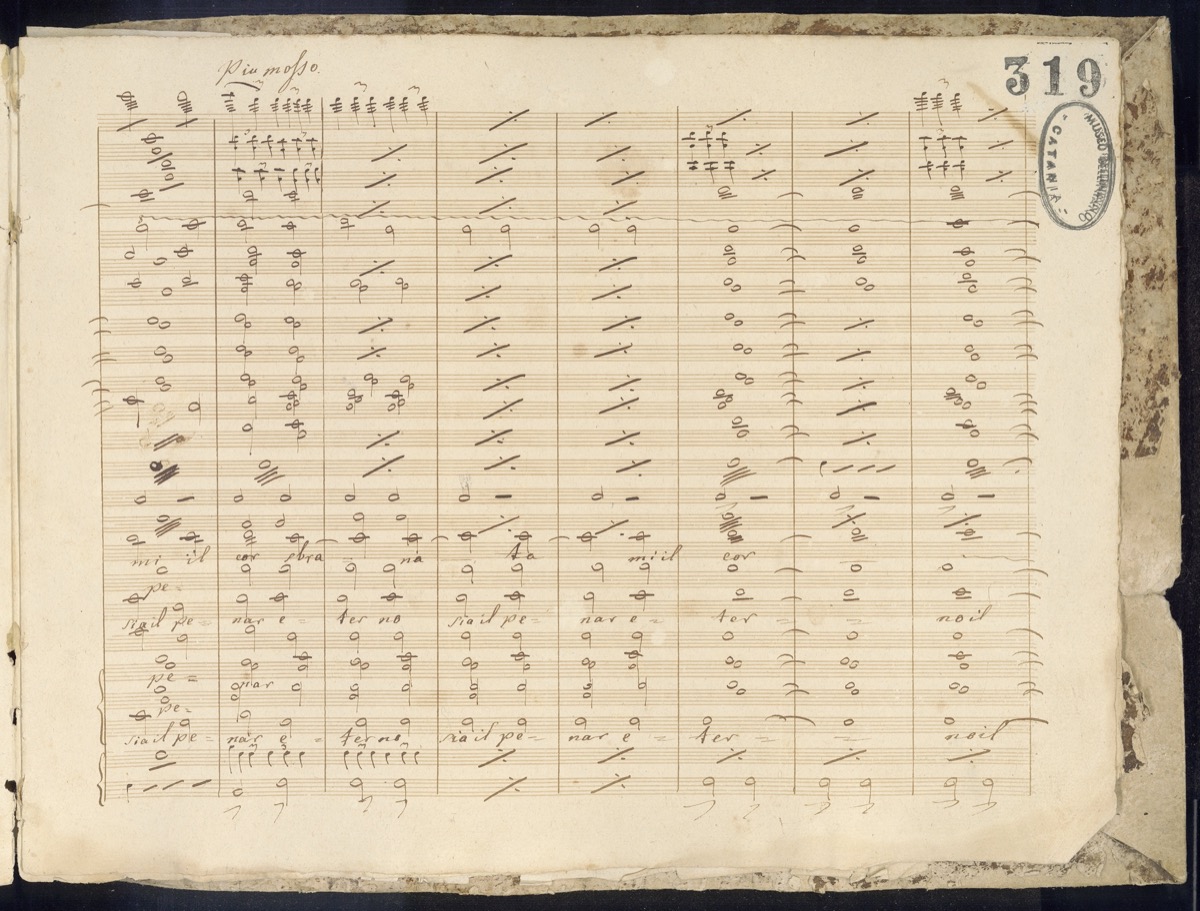 Piu mosso.
319
MUSEO BELLINIANO
- CATANIA -
mi il cor sbra - na - ta mi il cor
pe -
sia il pe = nar e = ter no sia il pe = nar e = ter = = no il
pe = nar
pe =
sia il pe = nar e = ter no sia il pe = nar e = ter = = no il